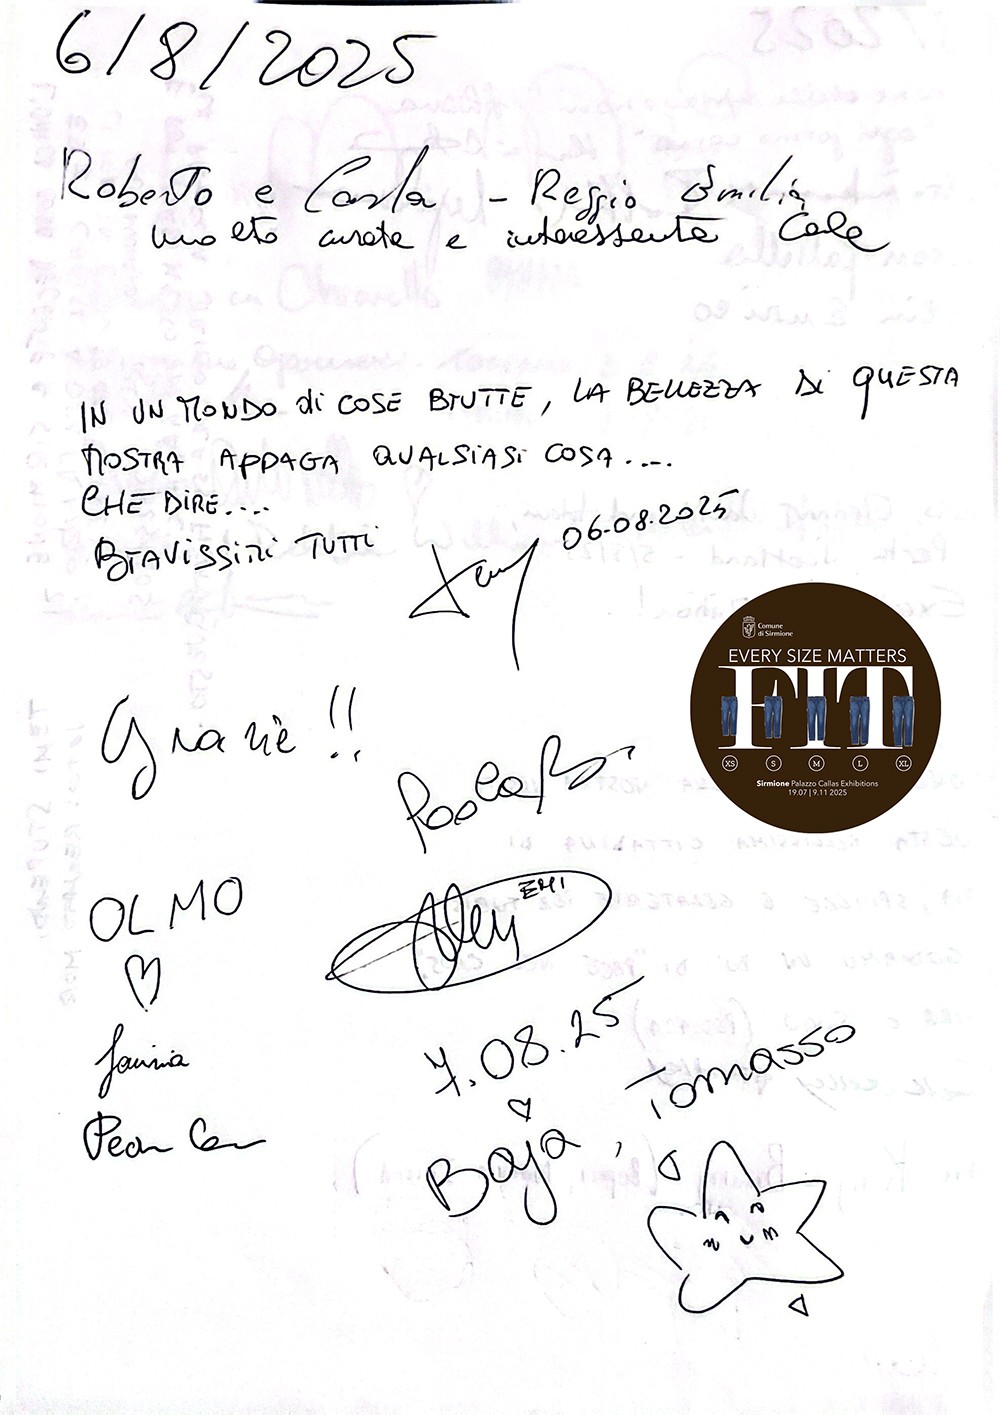 6/8/2025
Roberto e Carla - Reggio Emilia
molto curata e interessente
IN UN MONDO di COSE BRUTTE, LA BELLEZZA Di QUESTA
MOSTRA APPAGA QUALSIASI COSA....
CHE DIRE....
BRAVISSIMI TUTTI
06.08.2025
Comune
di Sirmione
EVERY SIZE MATTERS
FIT
XS S M L XL
Sirmione Palazzo Callas Exhibitions
19.07 | 9.11 2025
Grazie !!
Paola B
OLMO
EMI
Alex
7.08.25
Baja, Tomasso